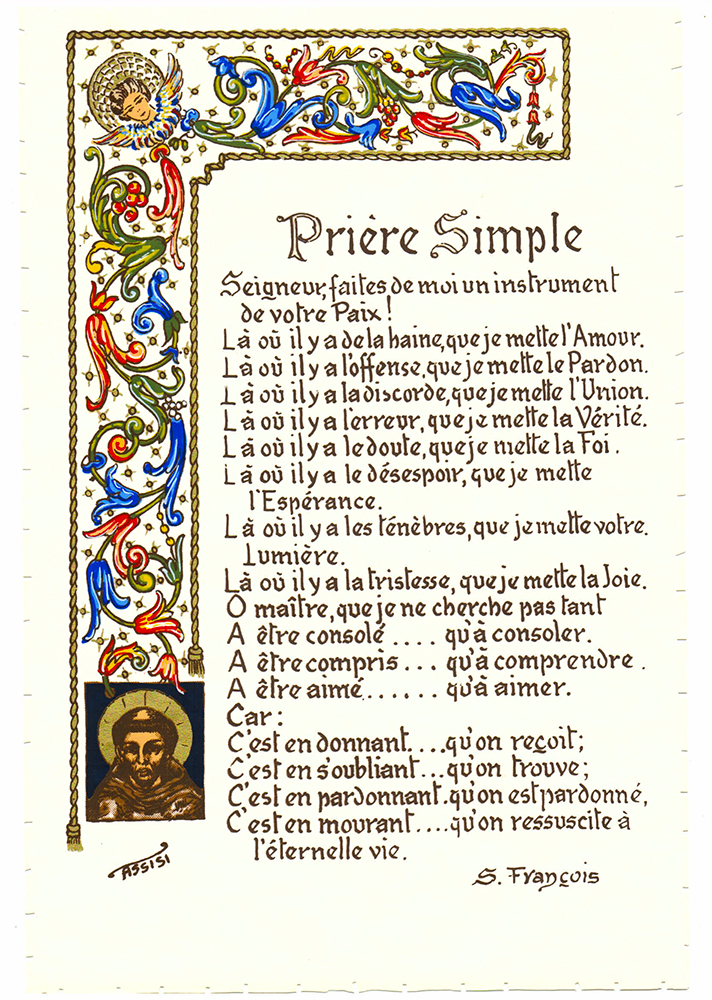 Prière Simple
Seigneur, faites de moi un instrument
de votre Paix!
Là où il y a de la haine, que je mette l'Amour.
Là où il y a l'offense, que je mette le Pardon.
Là où il y a la discorde, que je mette l'Union.
Là où il y a l'erreur, que je mette la Vérité.
Là où il y a le doute, que je mette la Foi.
Là où il y a le désespoir, que je mette
l'Espérance.
Là où il y a les ténèbres, que je mette votre.
Lumière.
Là où il y a la tristesse, que je mette la Joie.
O maître, que je ne cherche pas tant
A être consolé .... qu'à consoler.
A être compris ... qu'à comprendre.
A être aimé ...... qu'à aimer.
Car:
C'est en donnant....qu'on reçoit;
C'est en s'oubliant...qu'on trouve;
C'est en pardonnant.qu'on est pardonné,
C'est en mourant....qu'on ressuscite à
l'éternelle vie.
ASSISI
S. François